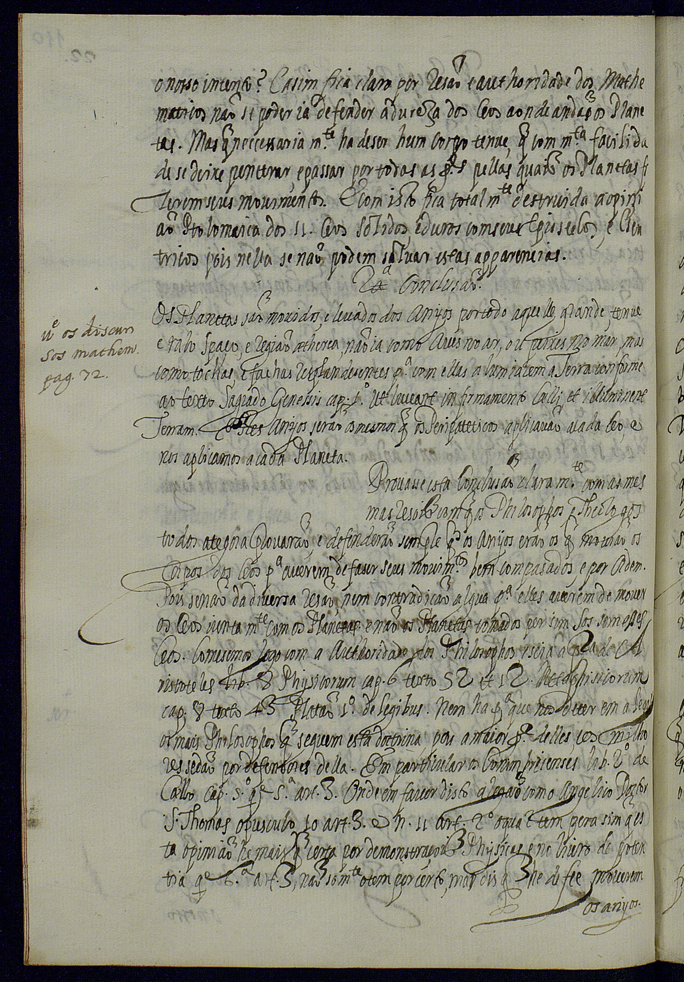 o nosso intento. E asim fica claro por resão e authoridade dos Mathe
maticos não se poder ia defender a dureza dos Ceos aonde andão os Plane
tas. Mas q necessariamte ha de ser hum corpo tenue, q com mta facilida
de se deixe penetrar e passar por todas as ps pellas quais os Planetas fi
zerem seus movimentos. E com isto fica totalmte destruida a opini
ão Ptolomaica dos 11. Ceos solidos e duros com seus Epiciclos, e Ecen
tricos pois nella se não podem salvar estas apparencias.
2ª Conclusão.
Os Planetas são movidos, e levados dos Anjos por todo aquelle grande, tenue
e raro spaço, e região ætherea, não ia como Aves no ar, ou peixes no mar, mas
como tochas, e fachas resplandescentes pª com ellas alumiarem a Terra conforme
ao texto Sagrado Genesis cap. 1º. Ut luceant in firmamento Cæli, et illuminent
Terram. Estes Anjos serão os mesmos q os Peripatteticos aplicavão a cada Ceo e
nos aplicamos a cada Planeta.
vº os discur
sos mathem.
pag. 72.
Provase esta Conclusão claramte com as mes
mas resois com q os Philosophos e Theologos
todos ategora provarão e defenderão sempre q os Anjos erão os q movião os
Corpos dos Ceos pª averem de fazer seus movimtos bem compasados e por ordem.
Pois senão da diversa resão, nem contradição algua pª elles averem de mover
os Ceos juntamte com os Planetas e não os Planetas tomados per si sos sem esses
Ceos. Comesemos logo com a Authoridade dos Philosophos, e seja a 1ª a de A
ristoteles lib. 8 Physicorum cap. 6 texto 52 et 12 Metaphisicorum
cap. 8 texto 43 Platão 1º de legibus. Nem ha pª que nos deter em a
os mais Philosophos q seguem esta doctrina pois a maior pte delles e os milho
res sedão por defensores della. Em particular os Conimbrisenses lib. 2º de
Cælo Cap. 5º qe 5ª art. 3. Onde em favor disto alegão com o Angelico Doctor
S. Thomas opusculo 10 art. 3. e n. 11 art. 2º o qual tem pera sim q es
ta opinião he mais q certa por demonstração Phisica, e no livro de poten
tia qe 6ª art. 3, não somte o tem por certo, mas dis q he de fee moverem
os anjos.